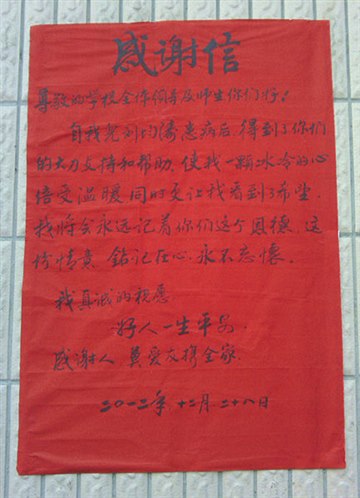 感谢信
尊敬的学校全体领导及师生你们好!
自我儿刘均涛患病后,得到了你们
的大力支持和帮助,使我一颗冰冷的心
倍受温暖同时更让我看到了希望.
我将会永远记着你们这个恩德.这
份情意 钻记在心.永不忘怀.
我真诚的祝愿
好人一生平安
感谢人 莫爱 全家.
二〇一二年 十二月 二十八日